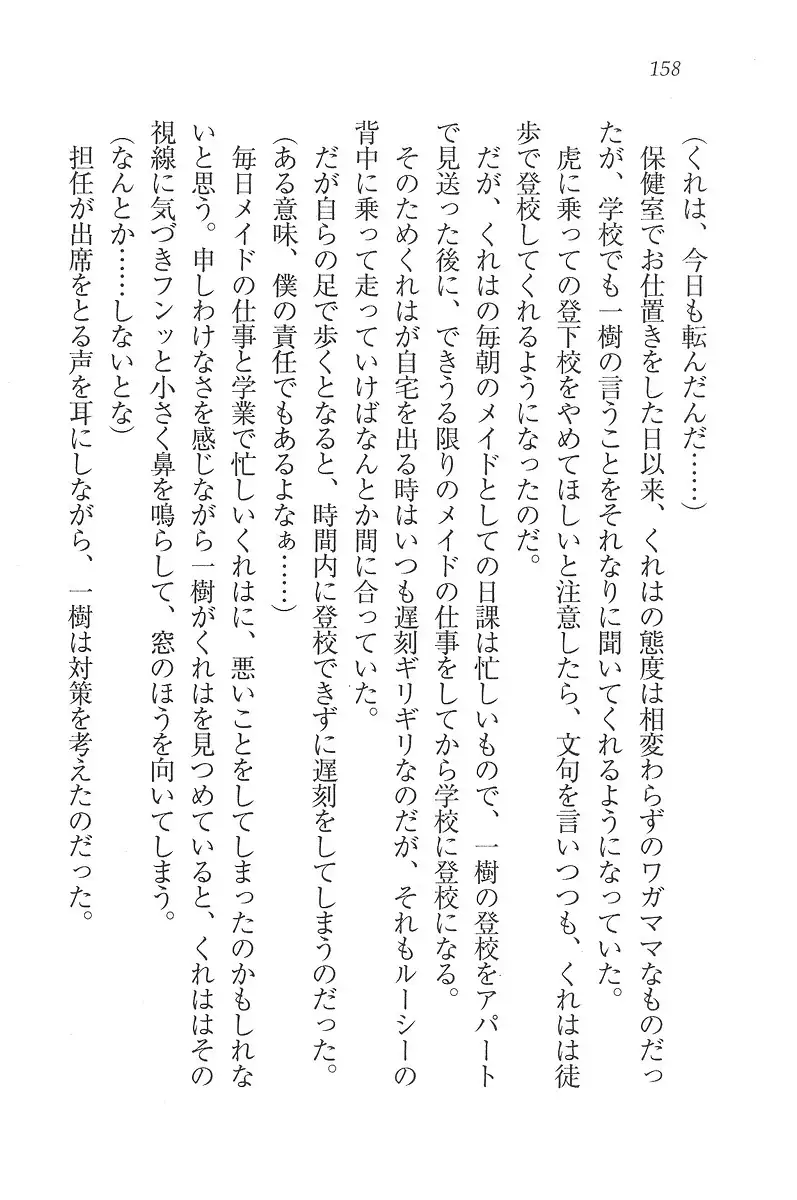 158
(くれは、今日も転んだんだ……)
　保健室でお仕置きをした日以来、くれはの態度は相変わらずのワガママなものだっ
たが、学校でも一樹の言うことをそれなりに聞いてくれるようになっていた。
　虎に乗っての登下校をやめてほしいと注意したら、文句を言いつつも、くれはは徒
歩で登校してくれるようになったのだ。
　だが、くれはの毎朝のメイドとしての日課は忙しいもので、一樹の登校をアパート
で見送った後に、できうる限りのメイドの仕事をしてから学校に登校になる。
　そのためくれはが自宅を出る時はいつも遅刻ギリギリなのだが、それもルーシーの
背中に乗って走っていけばなんとか間に合っていた。
　だが自らの足で歩くとなると、時間内に登校できずに遅刻をしてしまうのだった。
(ある意味、僕の責任でもあるよなぁ……)
　毎日メイドの仕事と学業で忙しいくれはに、悪いことをしてしまったのかもしれな
いと思う。申しわけなさを感じながら一樹がくれはを見つめていると、くれははその
視線に気づきフンッと小さく鼻を鳴らして、窓のほうを向いてしまう。
(なんとか……しないとな)
　担任が出席をとる声を耳にしながら、一樹は対策を考えたのだった。